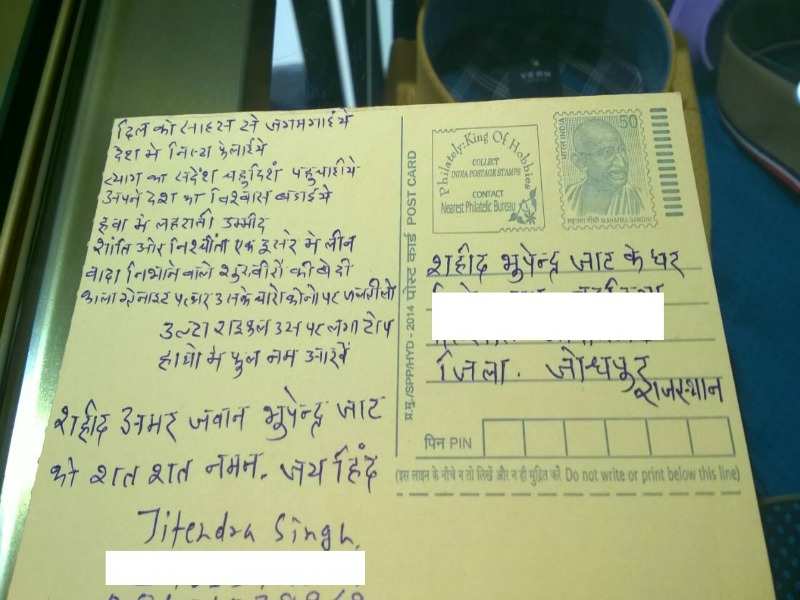 दिल को साहस से जगमगाइये
देश मे नित्य फैलाईये
त्याग का संदेश चहुदिश पहुचाईये
अपने देश का विश्वास बढाईये
हवा मे लहराती उम्मीद
शांति और निश्चींता एक दुसरे मे लीन
वादा निभाने वाले शुरवीरों की वेदी
काला ग्रेनाइट पत्थर उसके चारो कोनो पर
उल्टा राइफल उस पर लगा टोप
हाथो मे फुल नम आंखें
शहीद अमर जवान भुपेन्द्र जाट
को शत शत नमन. जय हिंद
Jitendra Singh.
प्र.मु./SPP/HYD - 2014 पोस्ट कार्ड POST CARD
Philately:King Of Hobbies
COLLECT
INDIA POSTAGE STAMPS
CONTACT
Nearest Philatelic Bureau
भारत INDIA
50
महात्मा गाँधी MAHATMA GANDHI
शहीद भुपेन्द्र जाट के घर
जिला. जोधपुर
राजस्थान
पिन PIN
(इस लाइन के नीचे न तो लिखें और न ही मुद्रित करें Do not write or print below this line)
VERN